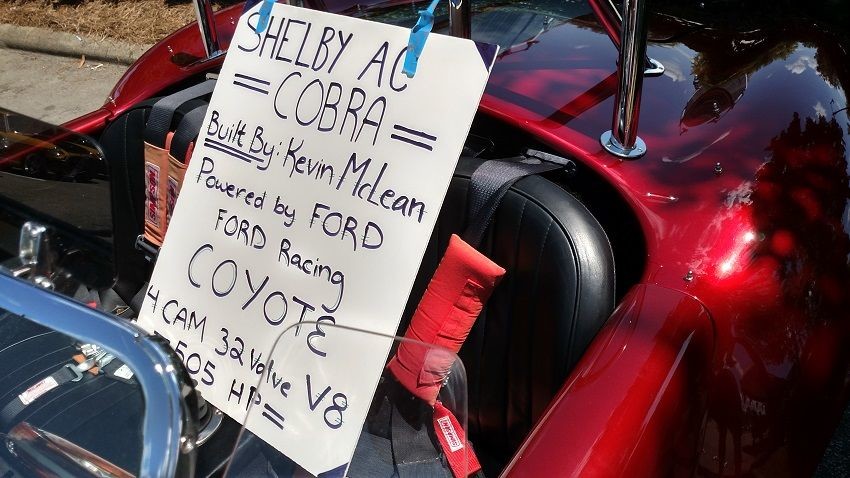 SHELBY AC
= COBRA =
Built By: Kevin McLean
Powered by FORD
FORD Racing
COYOTE
4 CAM 32 Valve V8
= 505 HP =